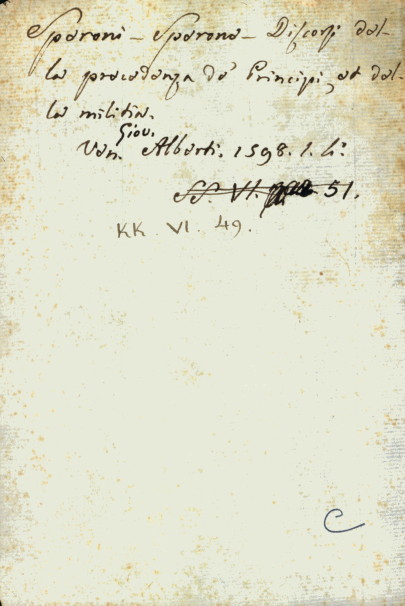 Speroni - Sperone - Discorsi del-
la precedenza de' Principi, et del-
la militia.
Giov.
Ven. Alberti. 1598. 1. li.
SS. VI. 51.
KK. VI. 49.
C